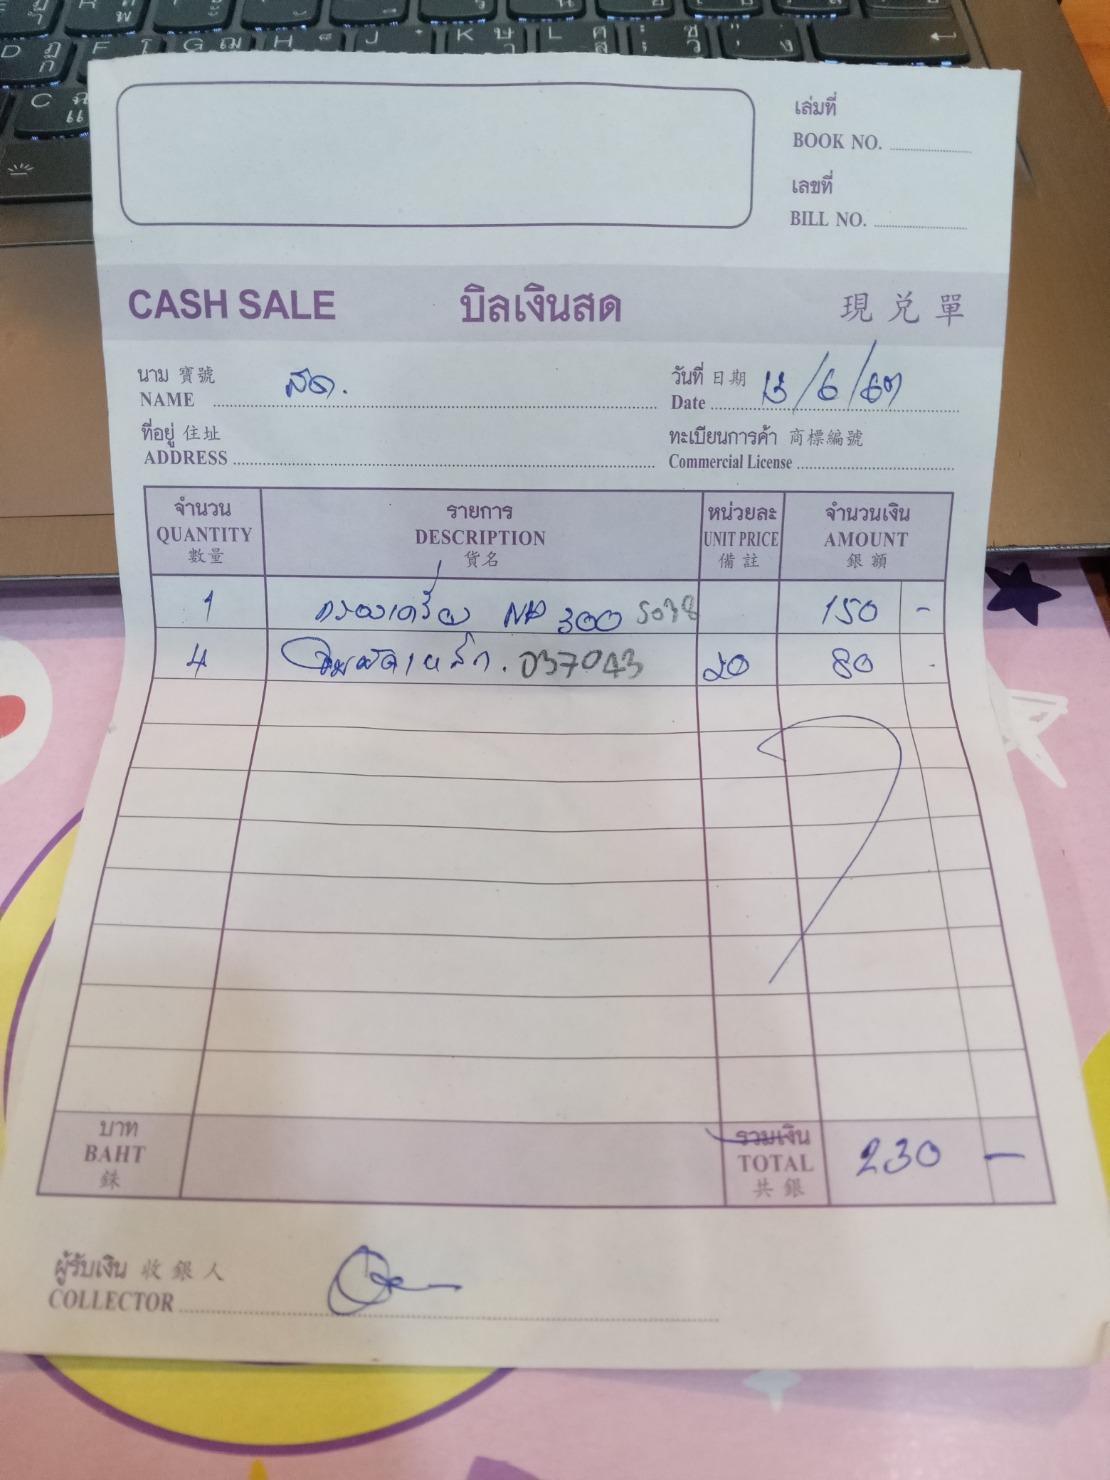 เล่มที่
BOOK NO.
เลขที่
BILL NO.
CASH SALE บิลเงินสด 現兑單
นาม 寶號
NAME สด.
วันที่ 日期
Date 13/6/67
ที่อยู่ 住址
ADDRESS
ทะเบียนการค้า 商標編號
Commercial License
จำนวน รายการ หน่วยละ จำนวนเงิน
QUANTITY DESCRIPTION UNIT PRICE AMOUNT
數量 貨名 備註 銀額
1 กรองเครื่อง NP 300 150 -
4 เหล็ก. 037043 20 80 -
บาท รวมเงิน
BAHT TOTAL 230 -
銖 共銀
ผู้รับเงิน 收銀人
COLLECTOR